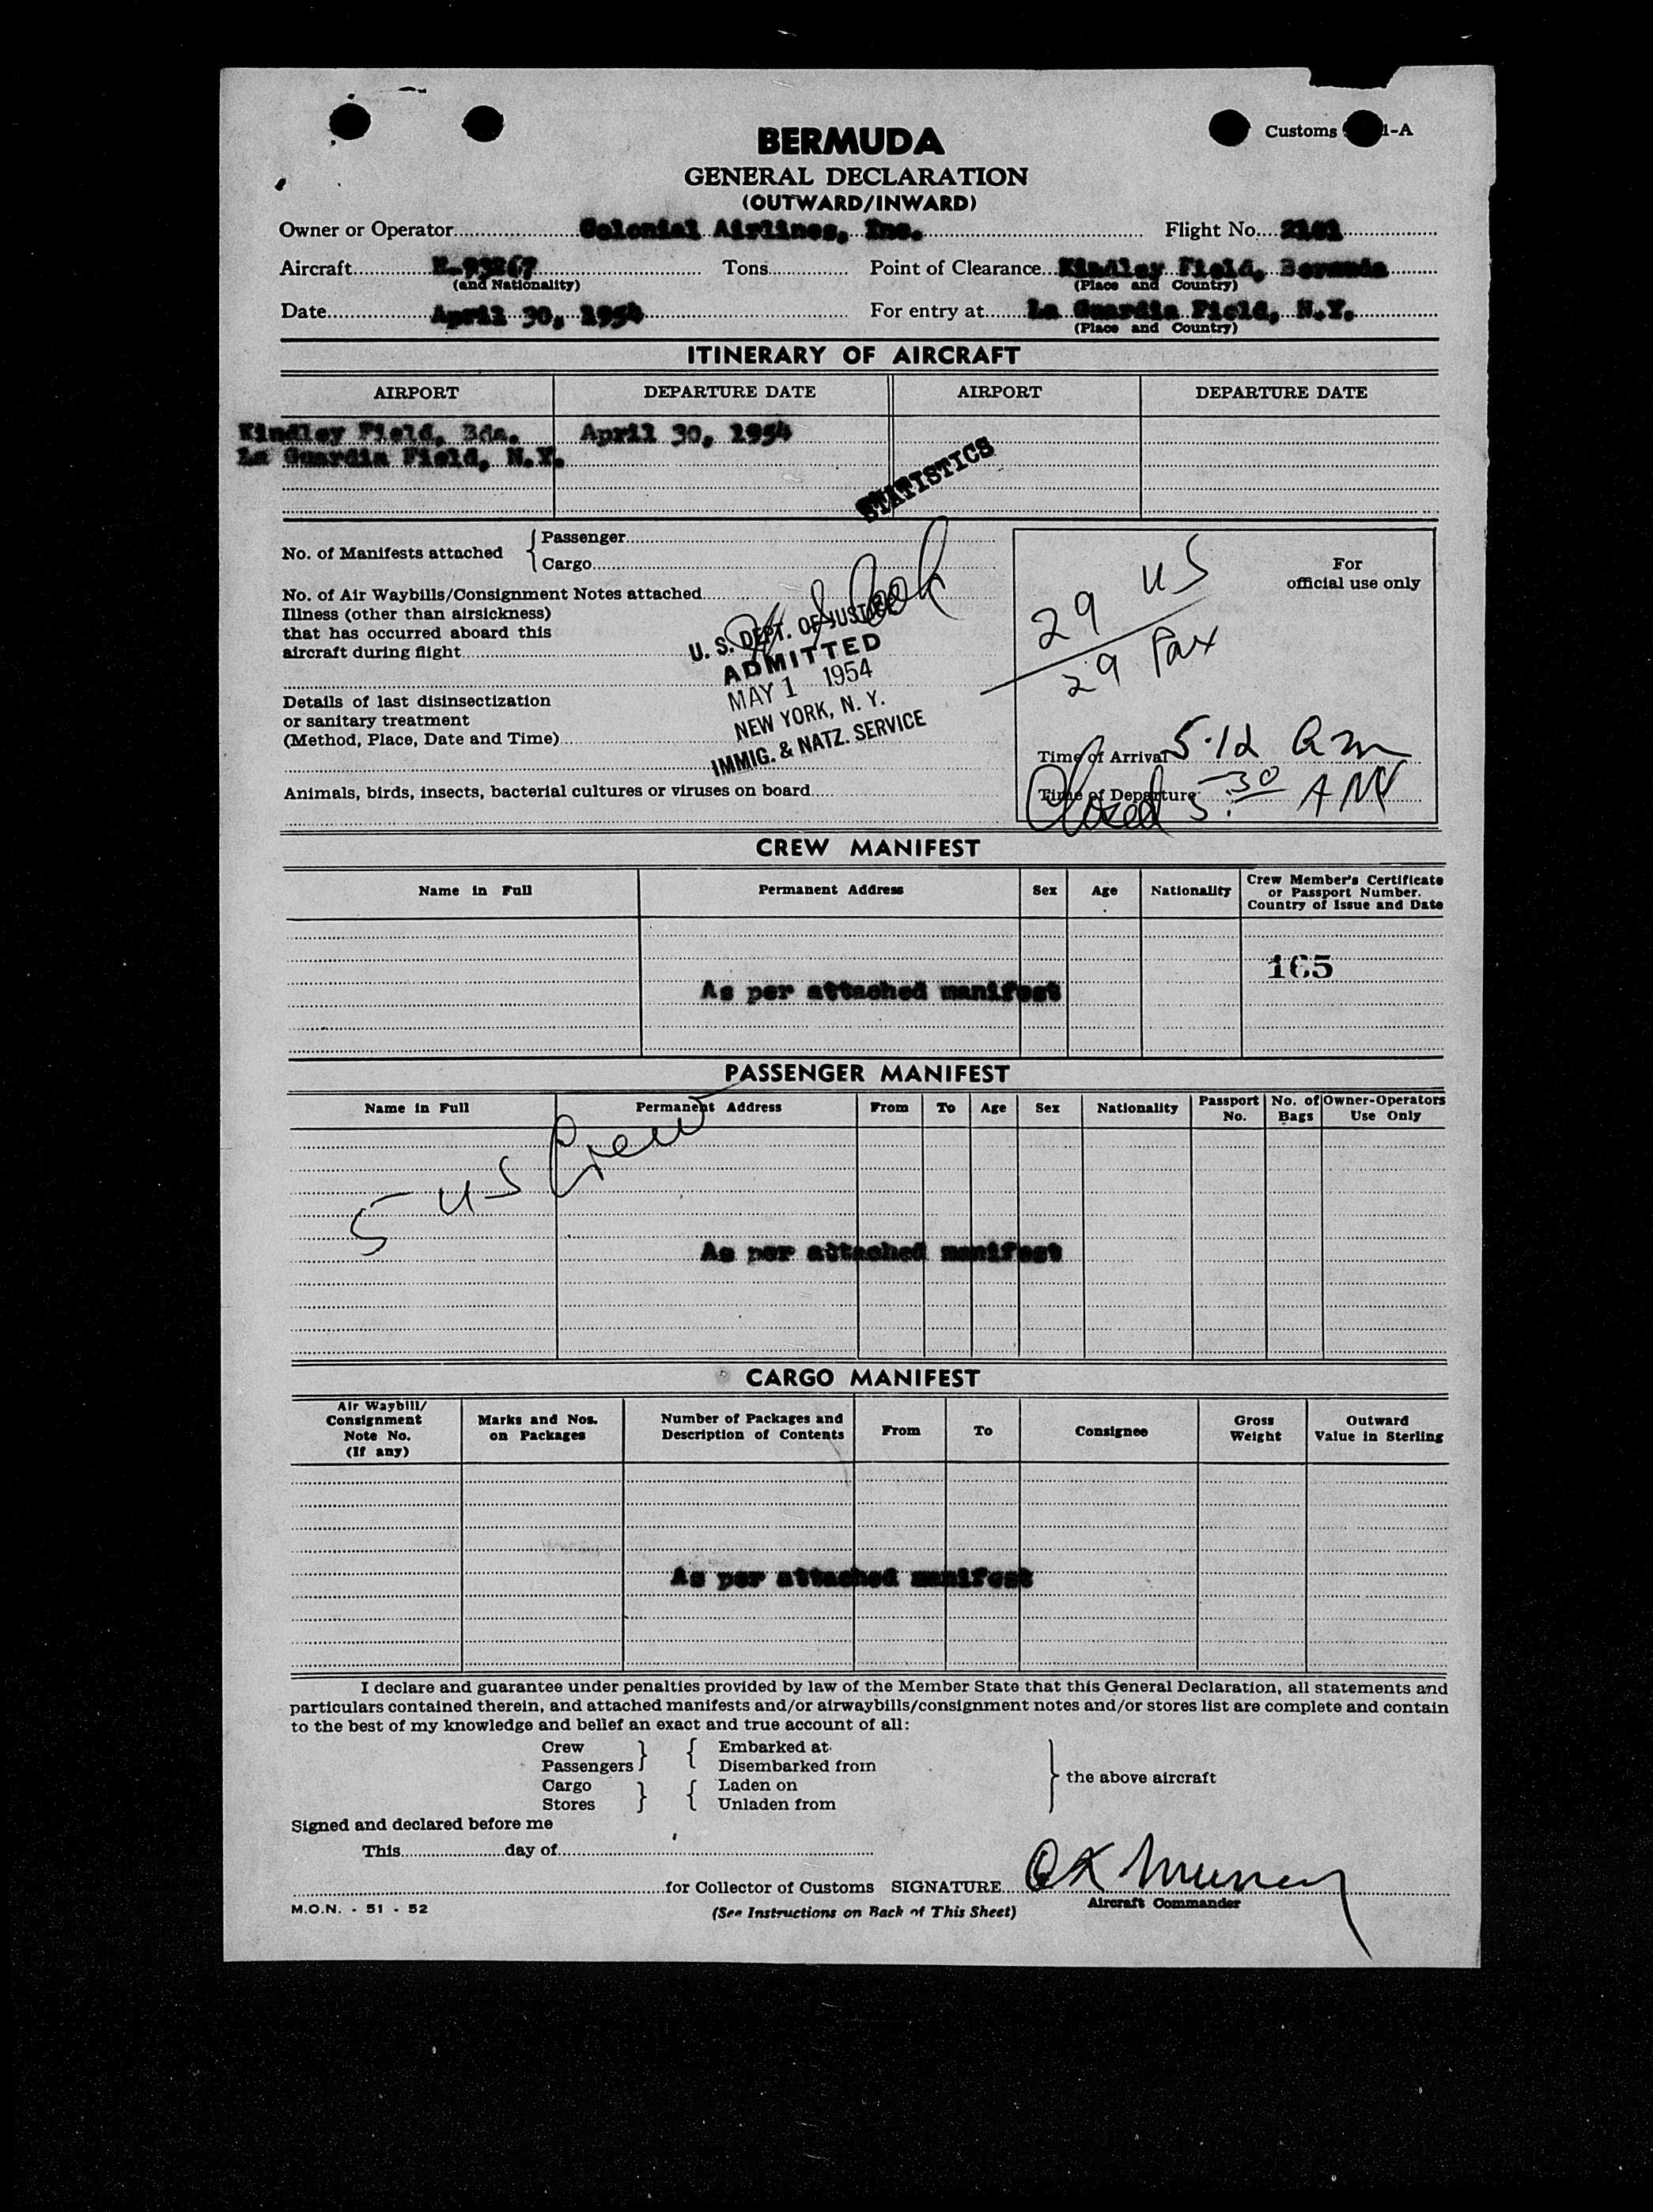 Customs 1-A
BERMUDA
GENERAL DECLARATION
(OUTWARD/INWARD)
Owner or Operator Colonial Airlines, Inc. Flight No.
Aircraft N-93267 Tons Point of Clearance Kindley Field, Bermuda
(and Nationality) (Place and Country)
Date April 30, 1954 For entry at La Guardia Field, N.Y.
(Place and Country)
ITINERARY OF AIRCRAFT
AIRPORT DEPARTURE DATE AIRPORT DEPARTURE DATE
Kindley Field, Bda. April 30, 1954
La Guardia Field, N.Y.
STATISTICS
No. of Manifests attached { Passenger
Cargo
For
official use only
29 US
29 Pax
No. of Air Waybills/Consignment Notes attached
Illness (other than airsickness)
that has occurred aboard this
aircraft during flight
Cook
U. S. DEPT. OF JUSTICE
ADMITTED
MAY 1 1954
NEW YORK, N. Y.
IMMIG. & NATZ. SERVICE
Details of last disinsectization
or sanitary treatment
(Method, Place, Date and Time)
Time of Arrival 5:12 am
Animals, birds, insects, bacterial cultures or viruses on board
Time of Departure
Closed 5:30 AM
CREW MANIFEST
Name in Full Permanent Address Sex Age Nationality Crew Member's Certificate
or Passport Number.
Country of Issue and Date
165
As per attached manifest
PASSENGER MANIFEST
Name in Full Permanent Address From To Age Sex Nationality Passport No. No. of Bags Owner-Operators Use Only
5 US Crew
As per attached manifest
CARGO MANIFEST
Air Waybill/
Consignment
Note No.
(If any) Marks and Nos.
on Packages Number of Packages and
Description of Contents From To Consignee Gross
Weight Outward
Value in Sterling
As per attached manifest
I declare and guarantee under penalties provided by law of the Member State that this General Declaration, all statements and
particulars contained therein, and attached manifests and/or airwaybills/consignment notes and/or stores list are complete and contain
to the best of my knowledge and belief an exact and true account of all:
Crew } { Embarked at
Passengers Disembarked from
Cargo } { Laden on
Stores Unladen from
} the above aircraft
Signed and declared before me
This day of
for Collector of Customs SIGNATURE OK Murray
Aircraft Commander
M.O.N. - 51 - 52 (See Instructions on Back of This Sheet)